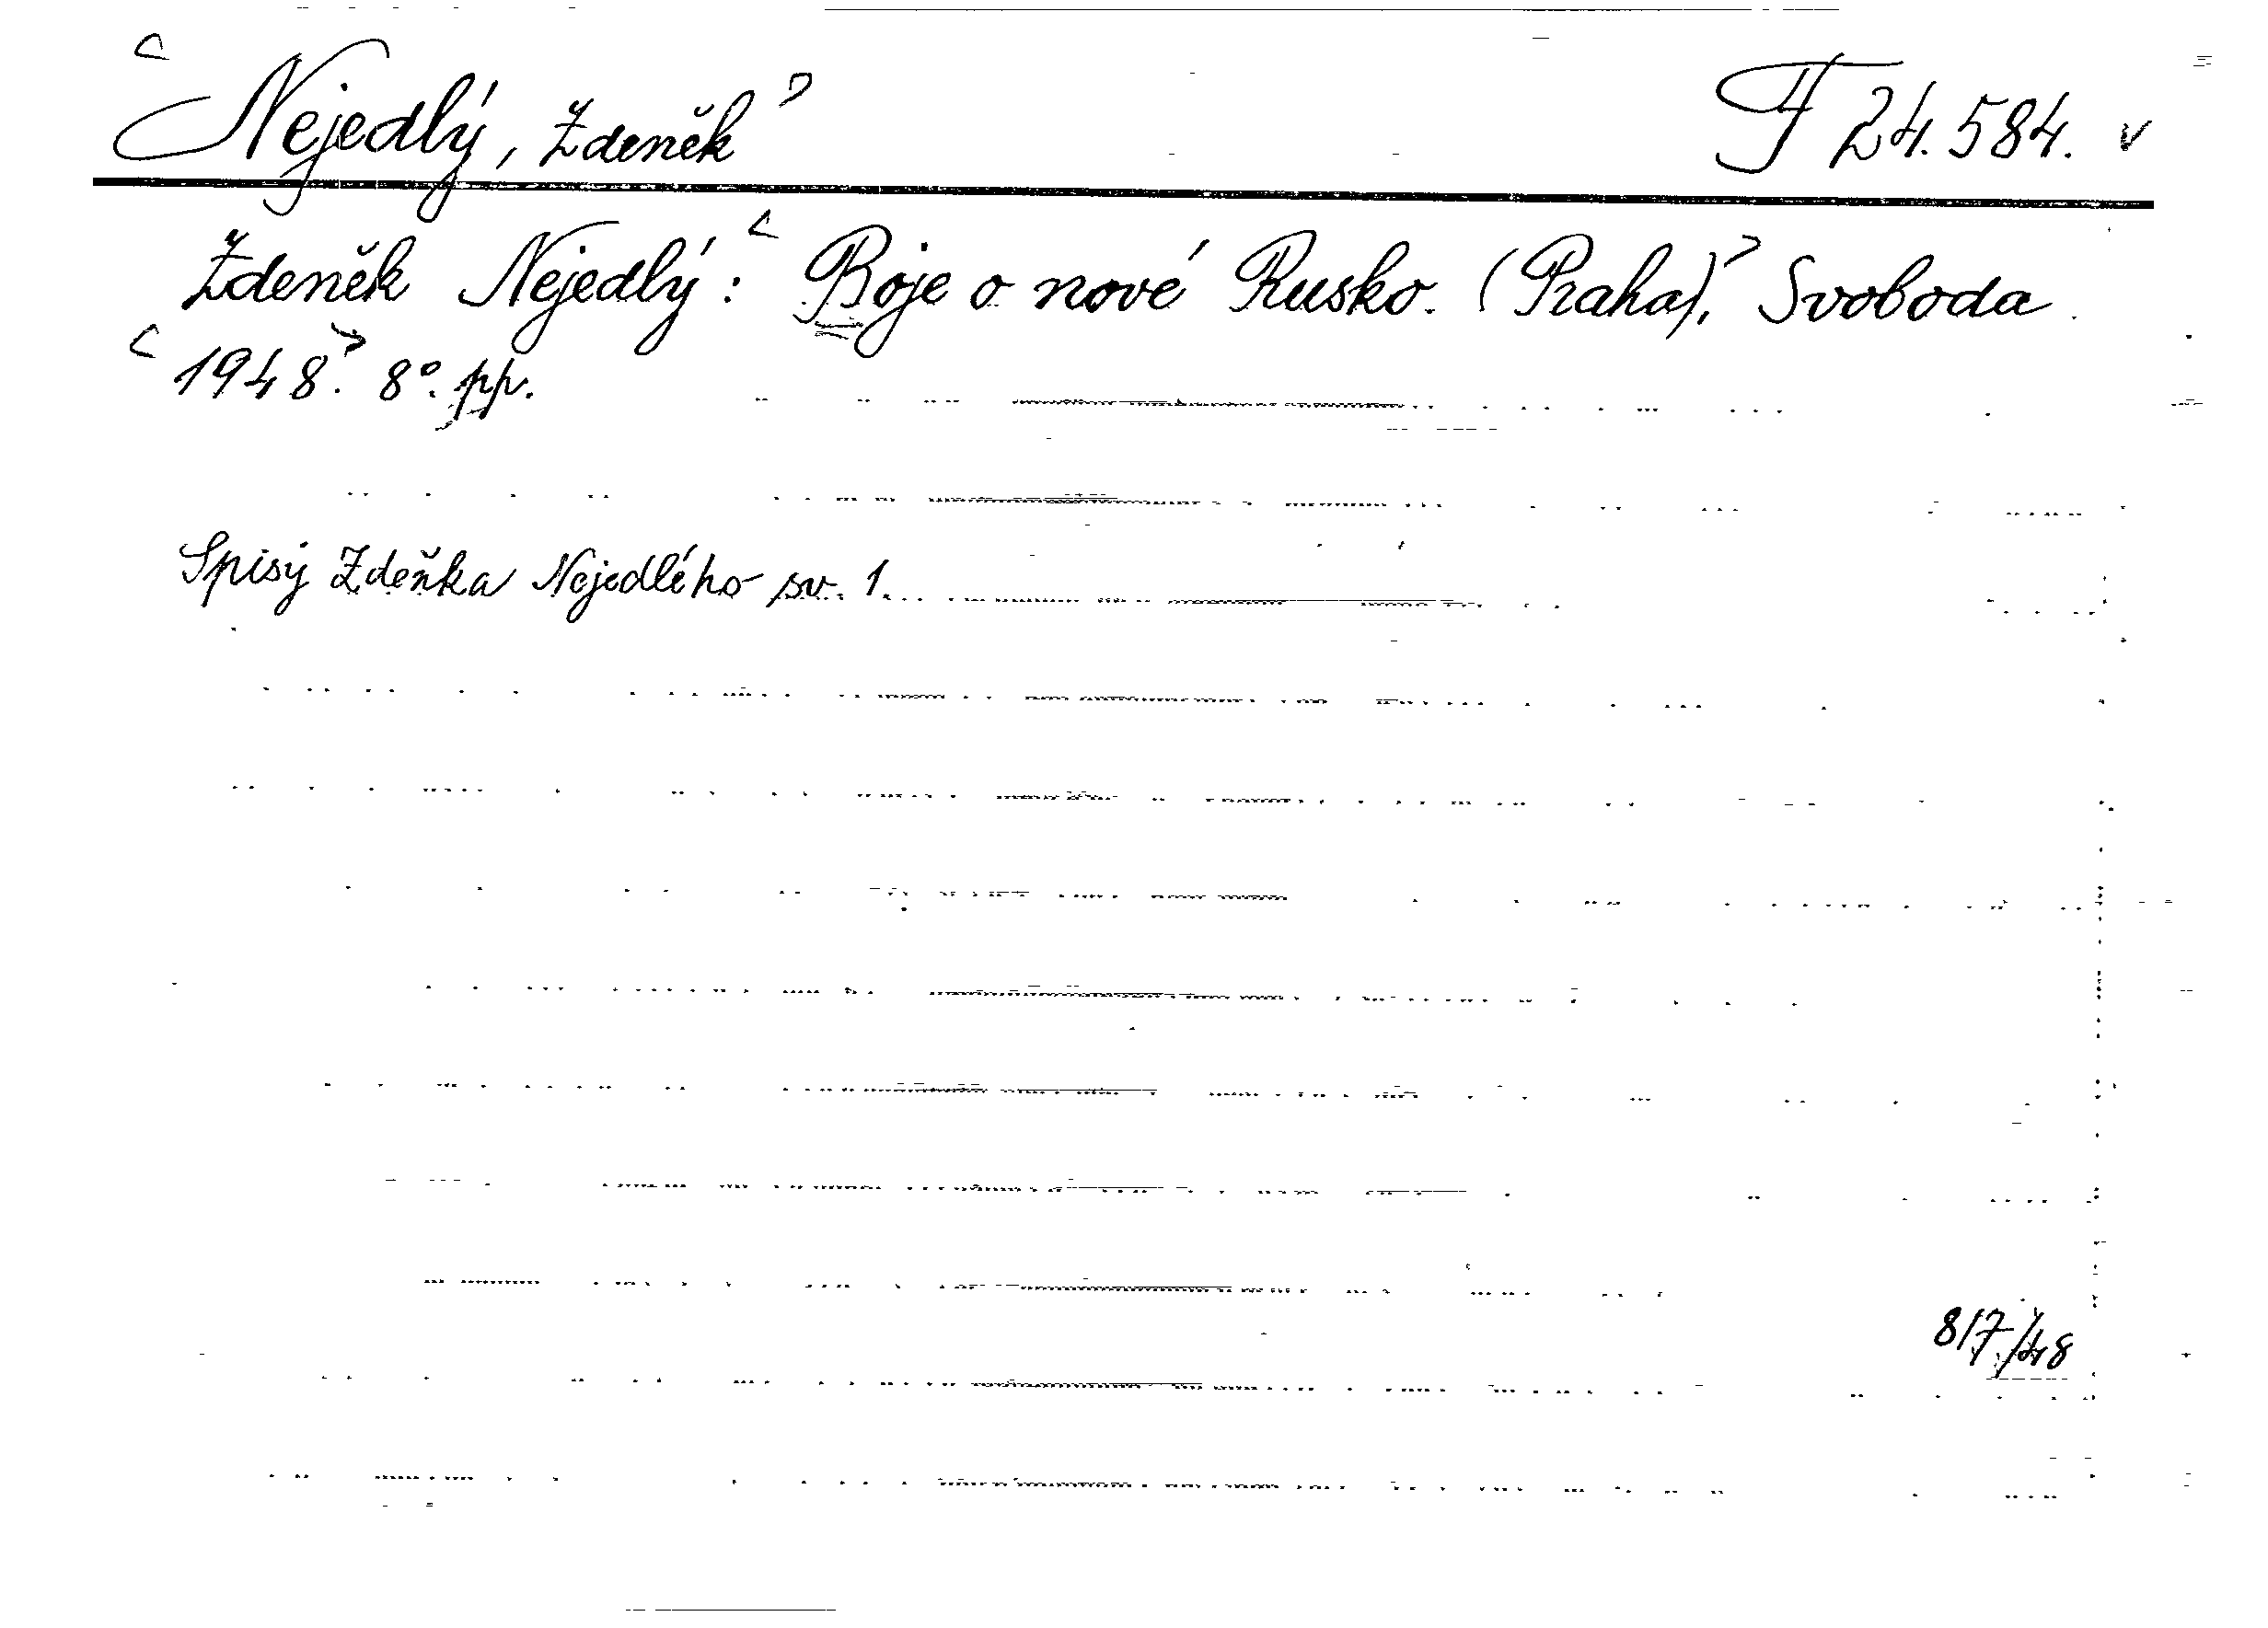 <Nejedlý, Zdeněk> F 24.584. v
Zdeněk Nejedlý: <Boje o nové Rusko. (Praha),> Svoboda
<1948>. 8°. pp.
Spisy Zdeňka Nejedlého sv. 1.
8/7/48